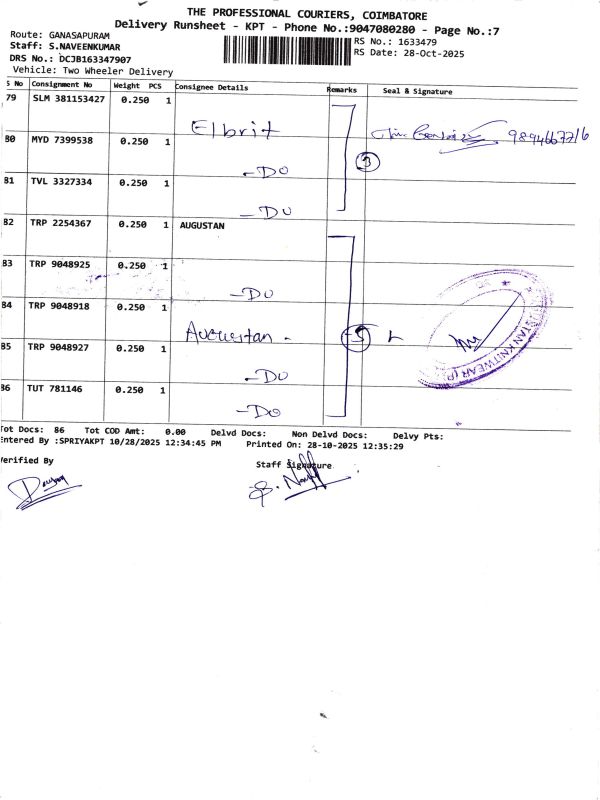 THE PROFESSIONAL COURIERS, COIMBATORE
Delivery Runsheet - KPT - Phone No.:9047080280 - Page No.:7
Route: GANASAPURAM
Staff: S.NAVEENKUMAR
RS No.: 1633479
DRS No.: DCJB163347907
RS Date: 28-Oct-2025
Vehicle: Two Wheeler Delivery
S No Consignment No Weight PCS Consignee Details Remarks Seal & Signature
79 SLM 381153427 0.250 1
Elbrit
9894667716
80 MYD 7399538 0.250 1
3
-DO
81 TVL 3327334 0.250 1
-DO
82 TRP 2254367 0.250 1 AUGUSTAN
83 TRP 9048925 0.250 1
-DO
84 TRP 9048918 0.250 1
Augustan -
5
KNITWEAR (P)
85 TRP 9048927 0.250 1
-DO
86 TUT 781146 0.250 1
-DO
Tot Docs: 86 Tot COD Amt: 0.00 Delvd Docs: Non Delvd Docs: Delvy Pts:
Entered By :SPRIYAKPT 10/28/2025 12:34:45 PM Printed On: 28-10-2025 12:35:29
Verified By
Staff Signature